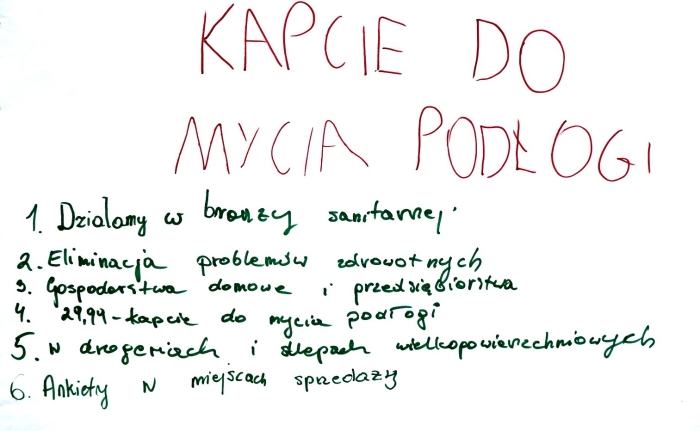 KAPCIE DO
MYCIA PODŁOGI
1. Działamy w branży sanitarnej.
2. Eliminacja problemów zdrowotnych
3. Gospodarstwa domowe i przedsiębiorstwa
4. 29,99 - kapcie do mycia podłogi
5. W drogeriach i sklepach wielkopowierzchniowych
6. Ankiety w miejscach sprzedaży